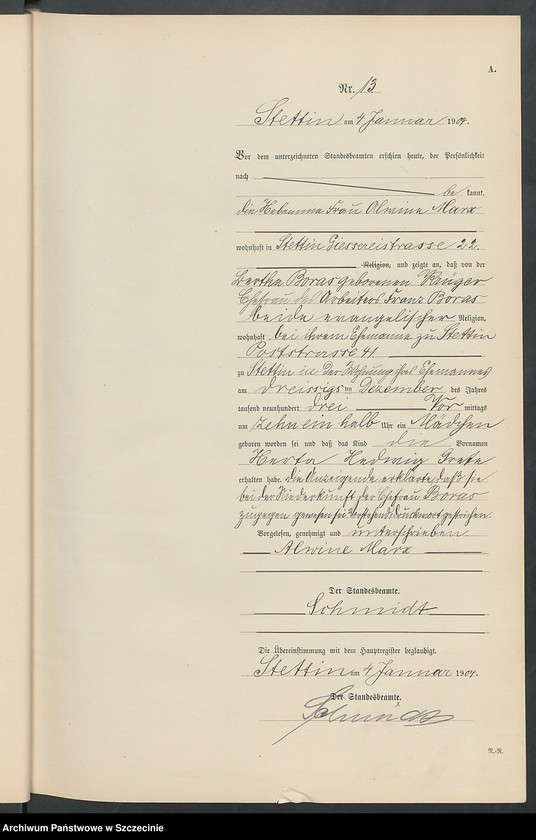 A.
Nr. 13
Stettin am 4 Januar 1904.
Vor dem unterzeichneten Standesbeamten erschien heute, der Persönlichkeit
nach
be kannt,
die Hebamme Frau Alwine Marx
wohnhaft in Stettin Giessereistrasse 22.
Religion, und zeigte an, daß von der
Bertha Boras geborenen Krüger
Ehefrau des Arbeiters Franz Boras
beide evangelischer Religion,
wohnhaft bei ihrem Ehemanne zu Stettin
Poststrasse 41
zu Stettin in der Wohnung ihres Ehemannes
am dreissigsten Dezember des Jahres
tausend neunhundert drei Vor mittags
um zehn ein halb Uhr ein Mädchen
geboren worden sei und daß das Kind die Vornamen
Herta Hedwig Grete
erhalten habe. die Anzeigende erklärte, daß sie
bei der Niederkunft der Ehefrau Boras
zugegen gewesen sei. Vorstehend 1 Druckwort gestrichen.
Vorgelesen, genehmigt und unterschrieben
Alwine Marx
Der Standesbeamte.
Schmidt
Die Übereinstimmung mit dem Hauptregister beglaubigt.
Stettin am 4 Januar 1904.
Der Standesbeamte.
Schmidt
N.-R.
Archiwum Państwowe w Szczecinie